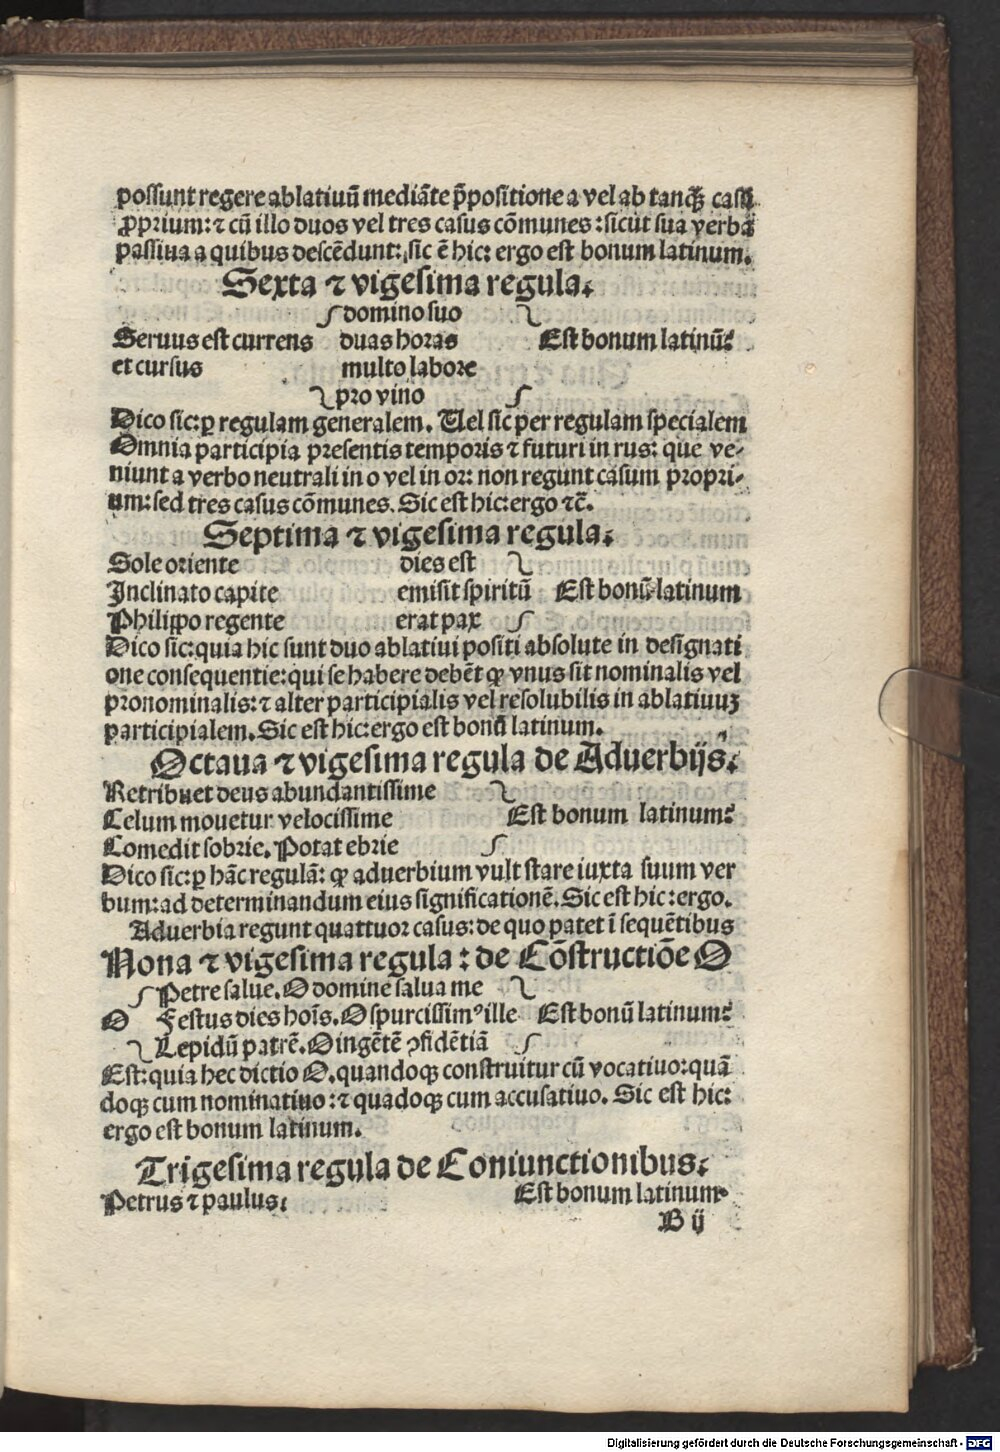 possunt regere ablatiuū mediāte p̄positione a vel ab tanꝙ̄ casū
ꝓprium: ⁊ cū illo duos vel tres casus cōmunes: sicut sua verba
passiua a quibus descēdunt: sic ē hic: ergo est bonum latinum.
Sexta ⁊ vigesima regula.
domino suo
Seruus est currens duas horas Est bonum latinū?
et cursus multo labore
pro vino
Dico sic: ꝑ regulam generalem. Uel sic per regulam specialem
Omnia participia presentis temporis ⁊ futuri in rus: que ve-
niunt a verbo neutrali in o vel in or: non regunt casum propri-
um: sed tres casus cōmunes. Sic est hic: ergo ⁊c̄.
Septima ⁊ vigesima regula.
Sole oriente dies est
Inclinato capite emisit spiritū Est bonū latinum
Philippo regente erat pax
Dico sic: quia hic sunt duo ablatiui positi absolute in designati
one consequentie: qui se habere debēt ꝙ vnus sit nominalis vel
pronominalis: ⁊ alter participialis vel resolubilis in ablatiuuꝫ
participialem. Sic est hic: ergo est bonū latinum.
Octaua ⁊ vigesima regula de Aduerbijs.
Retribuet deus abundantissime
Celum mouetur velocissime Est bonum latinum?
Comedit sobrie. Potat ebrie
Dico sic: ꝑ hāc regulā: ꝙ aduerbium vult stare iuxta suum ver
bum: ad determinandum eius significationē. Sic est hic: ergo.
Aduerbia regunt quattuor casus: de quo patet ī sequētibus
Nona ⁊ vigesima regula: de Cōstructiōe O
Petre salue. O domine salua me
O Festus dies hoīs. O spurcissimꝰ ille Est bonū latinum?
Lepidū patrē. O ingētē ꝯfidētiā
Est: quia hec dictio O. quandoqꝫ construitur cū vocatiuo: quā
doqꝫ cum nominatiuo: ⁊ quadoqꝫ cum accusatiuo. Sic est hic:
ergo est bonum latinum.
Trigesima regula de Coniunctionibus.
Petrus ⁊ paulus: Est bonum latinum.
B ij
Digitalisierung gefördert durch die Deutsche Forschungsgemeinschaft - DFG